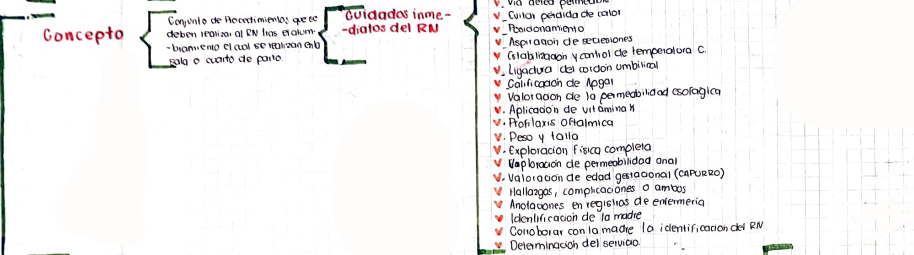 Concepto
Conjunto de Procedimientos que se
deben realizar al RN tras el alum-
-bramiento el cual se realizan en la
sala o cuarto de parto.
Cuidados inme-
-diatos del RN
✓. Vía aérea permeable
✓. Evitar pérdida de calor
✓. Posicionamiento
✓. Aspiración de secreciones
✓ Estabilización y control de temperatura C.
✓. Ligadura del cordón umbilical
✓ Calificación de Apgar
✓ Valoración de la permeabilidad esofágica
✓. Aplicación de vitamina K
✓. Profilaxis Oftalmica
✓. Peso y talla
✓. Exploración física completa
✓ Exploración de permeabilidad anal
✓. Valoración de edad gestacional (CAPURRO)
✓ Hallazgos, complicaciones o ambos
✓ Anotaciones en registros de enfermeria
✓ Identificación de la madre
✓ Corroborar con la madre la identificación del RN
✓ Determinación del servicio.